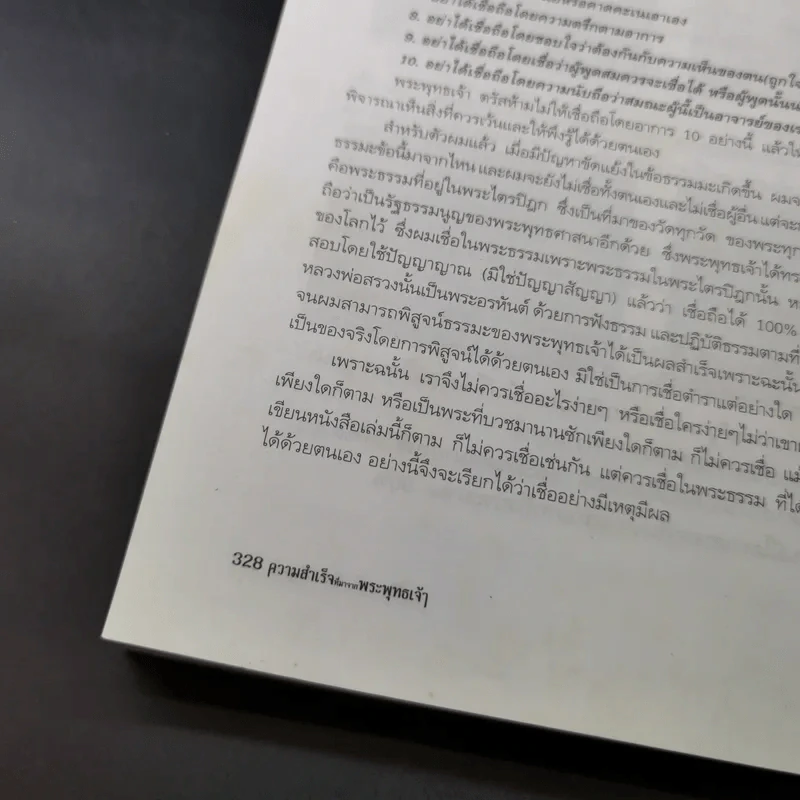 หรือคาดคะเนเอาเอง
8. อย่าได้เชื่อถือโดยความตรึกตามอาการ
9. อย่าได้เชื่อถือโดยชอบใจว่าต้องกันกับความเห็นของตน(ถูกใจ
10. อย่าได้เชื่อถือโดยเชื่อว่าผู้พูดสมควรจะเชื่อได้ หรือผู้พูดนั้นน
อย่าได้เชื่อถือโดยความนับถือว่าสมณะผู้นี้เป็นอาจารย์ของเร
พระพุทธเจ้า ตรัสห้ามไม่ให้เชื่อถือโดยอาการ 10 อย่างนี้ แล้วให
พิจารณาเห็นสิ่งที่ควรเว้นและให้พึงรู้ได้ด้วยตนเอง
สำหรับตัวผมแล้ว เมื่อมีปัญหาขัดแย้งในข้อธรรมมะเกิดขึ้น ผมจ
ธรรมะข้อนี้มาจากไหน และผมจะยังไม่เชื่อทั้งตนเองและไม่เชื่อผู้อื่น แต่จะ
คือพระธรรมที่อยู่ในพระไตรปิฎก ซึ่งเป็นที่มาของวัตทุกวัด ของพระทุก
ถือว่าเป็นรัฐธรรมนูญของพระพุทธศาสนาอีกด้วย ซึ่งพระพุทธเจ้าได้ทร
ของโลกไว้ ซึ่งผมเชื่อในพระธรรมเพราะพระธรรมในพระไตรปิฎกนั้น ห
สอบโดยใช้ปัญญาญาณ (มิใช่ปัญญาสัญญา) แล้วว่า เชื่อถือได้ 100%
หลวงพ่อสรวงนั้นเป็นพระอรหันต์ ด้วยการฟังธรรม และปฏิบัติธรรมตามที่
จนผมสามารถพิสูจน์ธรรมะของพระพุทธเจ้าได้เป็นผลสำเร็จเพราะฉะนั้น
เป็นของจริงโดยการพิสูจน์ได้ด้วยตนเอง มิใช่เป็นการเชื่อตำราแต่อย่างใด
เพราะฉนั้น เราจึงไม่ควรเชื่ออะไรง่ายๆ หรือเชื่อใครง่ายๆไม่ว่าเขา
เพียงใดก็ตาม หรือเป็นพระที่บวชมานานซักเพียงใดก็ตาม ก็ไม่ควรเชื่อ แม้
เขียนหนังสือเล่มนี้ก็ตาม ก็ไม่ควรเชื่อเช่นกัน แต่ควรเชื่อในพระธรรม ที่ได้
ได้ด้วยตนเอง อย่างนี้จึงจะเรียกได้ว่าเชื่ออย่างมีเหตุมีผล
328 ความสำเร็จที่มาจากพระพุทธเจ้า